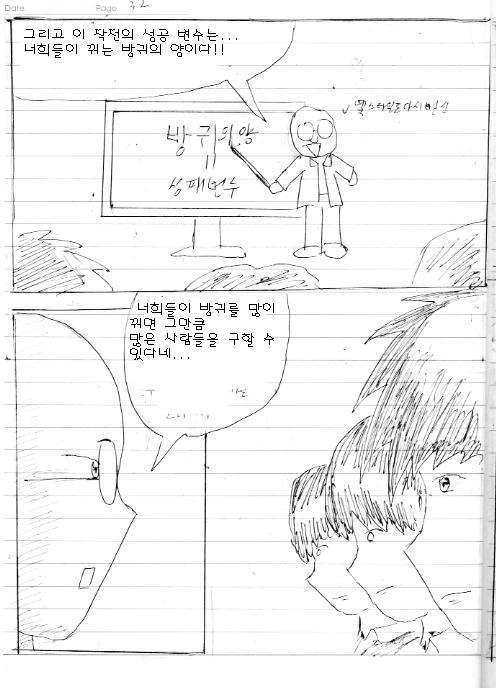 Date.
Page. 32
그리고 이 작전의 성공 변수는...
너희들이 뀌는 방귀의 양이다!!
방귀의 양
=
성패변수
너희들이 방귀를 많이
뀌면 그만큼
많은 사람들을 구할 수
있다네...